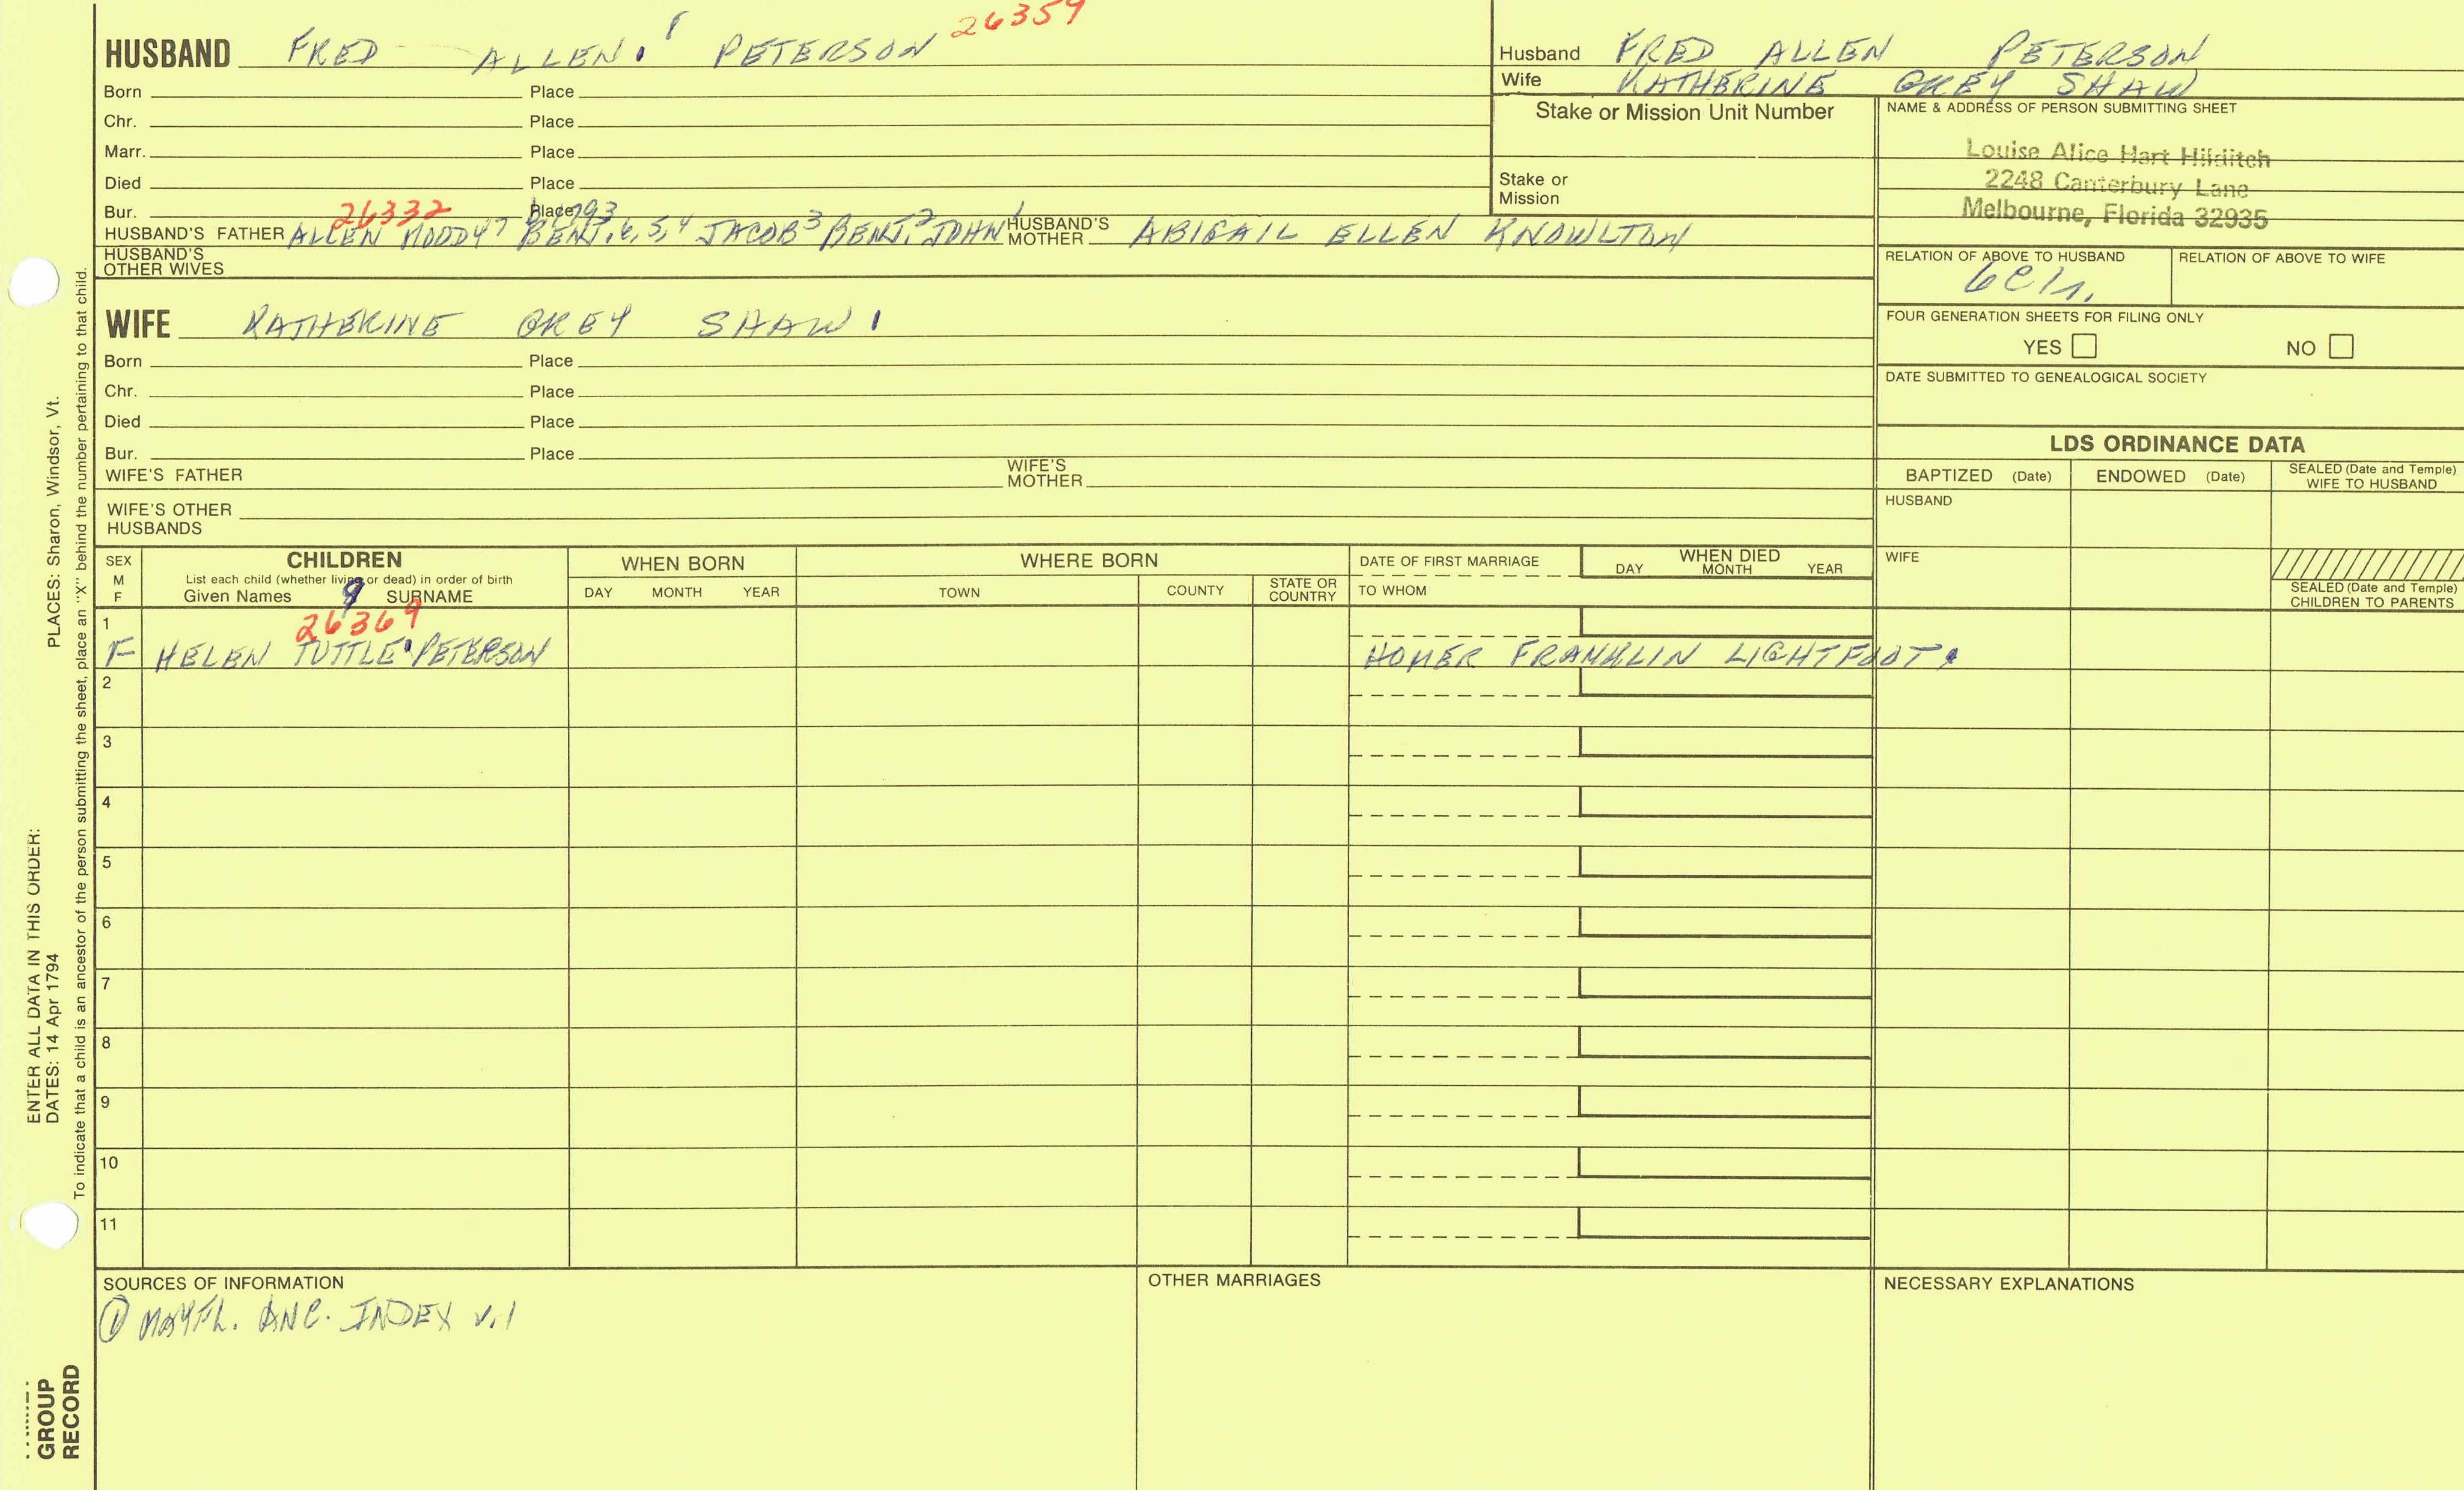 HUSBAND FRED ALLEN PETERSON 26359
Born Place
Chr. Place
Marr. Place
Died Place
Bur. Place
26332
HUSBAND'S FATHER ALLEN MOODY7 BENJ.6,5,4 JACOB3 BENJ.2 JOHN1 HUSBAND'S MOTHER ABIGAIL ELLEN KNOWLTON
HUSBAND'S OTHER WIVES
Husband FRED ALLEN PETERSON
Wife KATHERINE GREY SHAW
Stake or Mission Unit Number
Stake or
Mission
NAME & ADDRESS OF PERSON SUBMITTING SHEET
Louise Alice Hart Hilditch
2248 Canterbury Lane
Melbourne, Florida 32935
RELATION OF ABOVE TO HUSBAND RELATION OF ABOVE TO WIFE
FOUR GENERATION SHEETS FOR FILING ONLY
YES NO
DATE SUBMITTED TO GENEALOGICAL SOCIETY
WIFE KATHERINE GREY SHAW 1
Born Place
Chr. Place
Died Place
Bur. Place
WIFE'S FATHER WIFE'S MOTHER
WIFE'S OTHER
HUSBANDS
LDS ORDINANCE DATA
BAPTIZED (Date) ENDOWED (Date) SEALED (Date and Temple) WIFE TO HUSBAND
HUSBAND
WIFE
SEALED (Date and Temple)
CHILDREN TO PARENTS
SEX
M
F
CHILDREN
List each child (whether living or dead) in order of birth
Given Names 9 SURNAME
WHEN BORN
DAY MONTH YEAR
WHERE BORN
TOWN COUNTY STATE OR COUNTRY
DATE OF FIRST MARRIAGE
TO WHOM
WHEN DIED
DAY MONTH YEAR
26369
1
F HELEN TUTTLE PETERSON HOMER FRANKLIN LIGHTFOOT
2
3
4
5
6
7
8
9
10
11
SOURCES OF INFORMATION
① MAYFL. ANC. INDEX v.1
OTHER MARRIAGES
NECESSARY EXPLANATIONS
ENTER ALL DATA IN THIS ORDER:
DATES: 14 Apr 1794
PLACES: Sharon, Windsor, Vt.
To indicate that a child is an ancestor of the person submitting the sheet, place an "X" behind the number pertaining to that child.
GROUP
RECORD